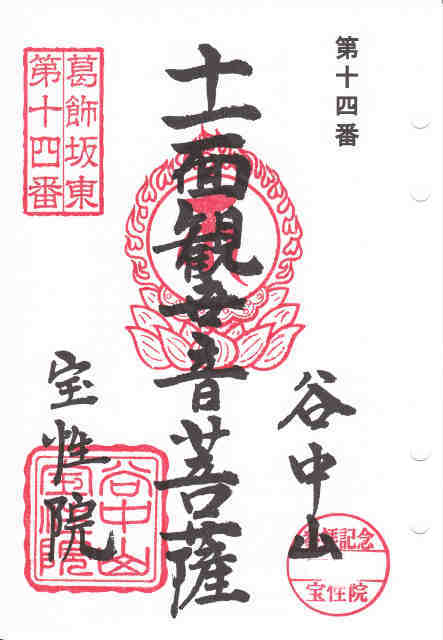 第十四番
谷中山
参拝記念
宝性院
十一面観世音菩薩
葛飾坂東
第十四番
宝性院
谷中山
宝性院